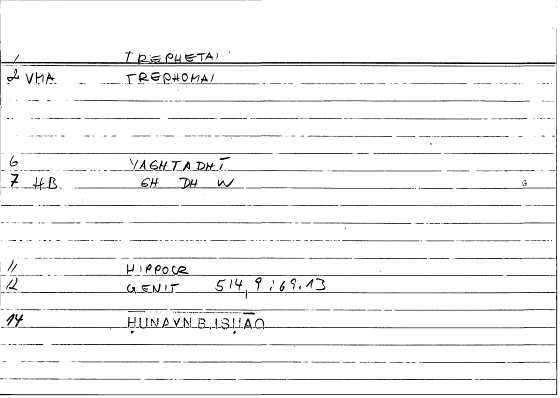 1 TREPHETAI
2 VMA TREPHOMAI
6 YAGHTADHĪ
7 HB GH DH W G
11 HIPPOCR
12 GENIT 514,9:69.13
14